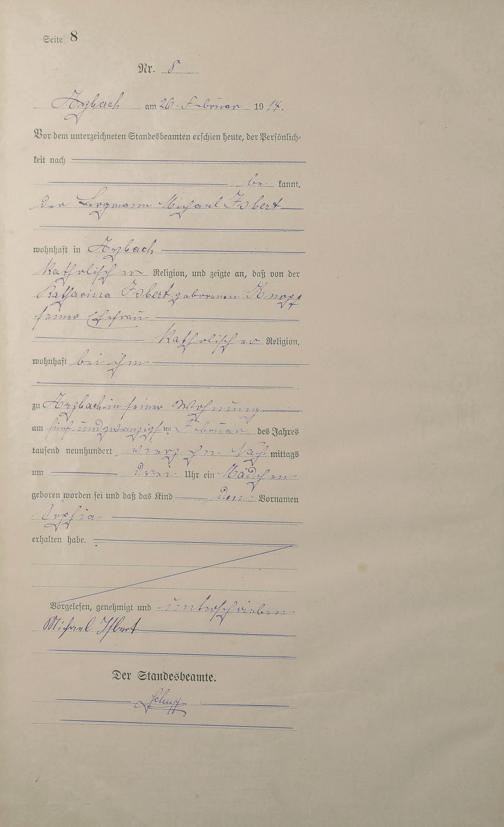 Seite 8
Nr. 8
am 26. Februar 1914.
Vor dem unterzeichneten Standesbeamten erschien heute, der Persönlich-
keit nach
be kannt,
der Bergmann Michael
wohnhaft in
katholischer Religion, und zeigte an, daß von der
Katharina geborenen
seiner Ehefrau
katholischer Religion,
wohnhaft bei ihm
zu in seiner Wohnung
am fünfundzwanzigsten Februar des Jahres
tausend neunhundert vierzehn Nach mittags
um drei Uhr ein Mädchen
geboren worden sei und daß das Kind den Vornamen
Sophia
erhalten habe.
Vorgelesen, genehmigt und unterschrieben
Michael
Der Standesbeamte.